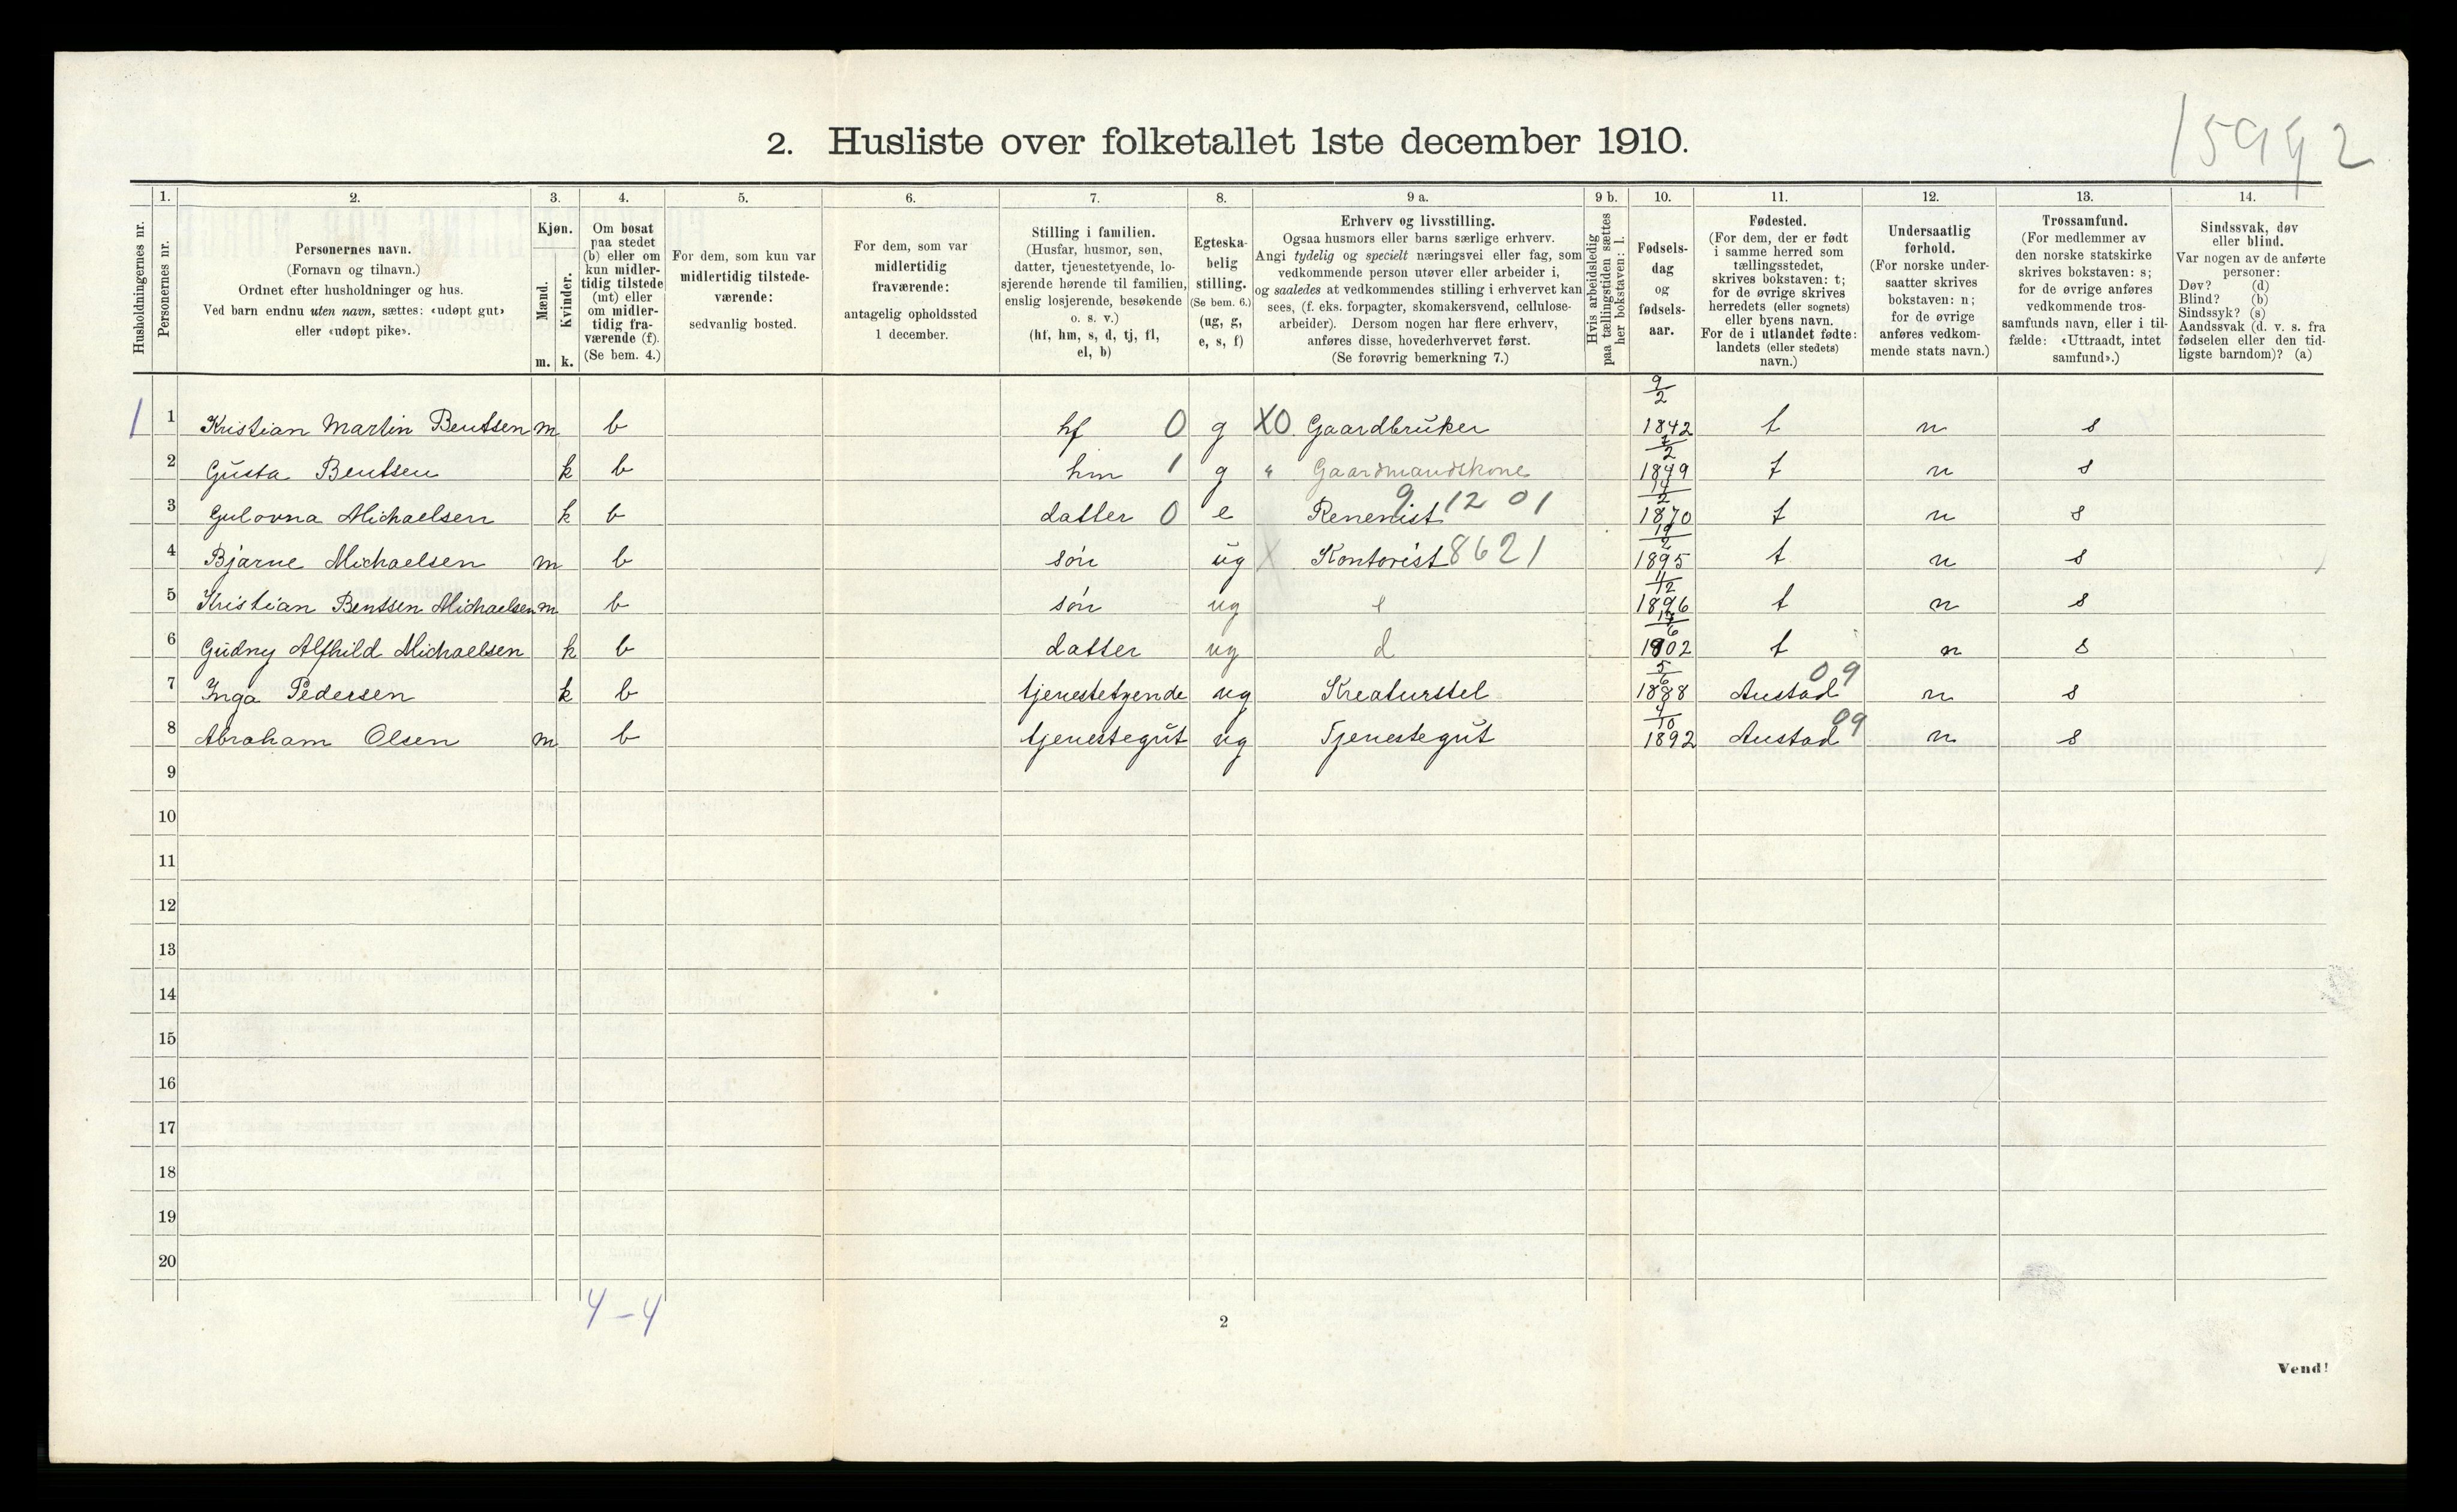 15992
2. Husliste over folketallet 1ste december 1910.
Husholdningernes nr.
1.
Personernes nr.
2.
Personernes navn.
(Fornavn og tilnavn.)
Ordnet efter husholdninger og hus.
Ved barn endnu uten navn, sættes: «udøpt gut»
eller «udøpt pike».
3.
Kjøn.
Mænd.
Kvinder.
m. k.
4.
Om bosat
paa stedet
(b) eller om
kun midler-
tidig tilstede
(mt) eller
om midler-
tidig fra-
værende (f).
(Se bem. 4.)
5.
For dem, som kun var
midlertidig tilstede-
værende:
sedvanlig bosted.
6.
For dem, som var
midlertidig
fraværende:
antagelig opholdssted
1 december.
7.
Stilling i familien.
(Husfar, husmor, søn,
datter, tjenestetyende, lo-
sjerende hørende til familien,
enslig losjerende, besøkende
o. s. v.)
(hf, hm, s, d, tj, fl,
el, b)
8.
Egteska-
belig
stilling.
(Se bem. 6.)
(ug, g,
e, s, f)
9 a.
Erhverv og livsstilling.
Ogsaa husmors eller barns særlige erhverv.
Angi tydelig og specielt næringsvei eller fag, som
vedkommende person utøver eller arbeider i,
og saaledes at vedkommendes stilling i erhvervet kan
sees, (f. eks. forpagter, skomakersvend, cellulose-
arbeider). Dersom nogen har flere erhverv,
anføres disse, hovederhvervet først.
(Se forøvrig bemerkning 7.)
9 b.
Hvis arbeidsledig
paa tællingstiden sættes
her bokstaven: l.
10.
Fødsels-
dag
og
fødsels-
aar.
11.
Fødested.
(For dem, der er født
i samme herred som
tællingsstedet,
skrives bokstaven: t;
for de øvrige skrives
herredets (eller sognets)
eller byens navn.
For de i utlandet fødte:
landets (eller stedets)
navn.)
12.
Undersaatlig
forhold.
(For norske under-
saatter skrives
bokstaven: n;
for de øvrige
anføres vedkom-
mende stats navn.)
13.
Trossamfund.
(For medlemmer av
den norske statskirke
skrives bokstaven: s;
for de øvrige anføres
vedkommende tros-
samfunds navn, eller i til-
fælde: «Uttraadt, intet
samfund».)
14.
Sindssvak, døv
eller blind.
Var nogen av de anførte
personer:
Døv? (d)
Blind? (b)
Sindssyk? (s)
Aandssvak (d. v. s. fra
fødselen eller den tid-
ligste barndom)? (a)
1 1 Kristian Martin Bentsen m b hf 0 g X0 Gaardbruker 9/2 1842 t n s
2 Gusta Bentsen k b hm 1 g " Gaardmandskone 7/2 1849 t n s
3 Gulovna Michaelsen k b datter 0 e Renenist 9 12 01 14/2 1870 t n s
4 Bjarne Michaelsen m b søn ug X Kontorist 8621 19/2 1895 t n s
5 Kristian Bentsen Michaelsen m b søn ug 11/12 1896 t n s
6 Gudny Alfhild Michaelsen k b datter ug d 17/6 1902 t n s
7 Inga Pedersen k b tjenestetyende ug Kreaturstel 5/6 1888 Austad 09 n s
8 Abraham Olsen m b tjenestegut ug Tjenestegut 4/10 1892 Austad 09 n s
9
10
11
12
13
14
15
16
17
18
19
20
4-4
2
Vend!